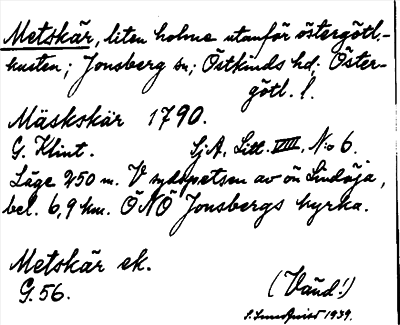 Metskär, liten holme utanför östergötl.-
kusten; Jonsberg sn; Östkinds hd; Öster-
götl. l.
Mäskskär 1790.
G. Klint. SjA, Litt. VIII, No 6.
Läge 250 m. V sydspetsen av ön Lindöja,
bel. 6,9 km. ÖNÖ Jonsbergs kyrka.
Metskär ek.
G. 56. (Vänd!)
1939.